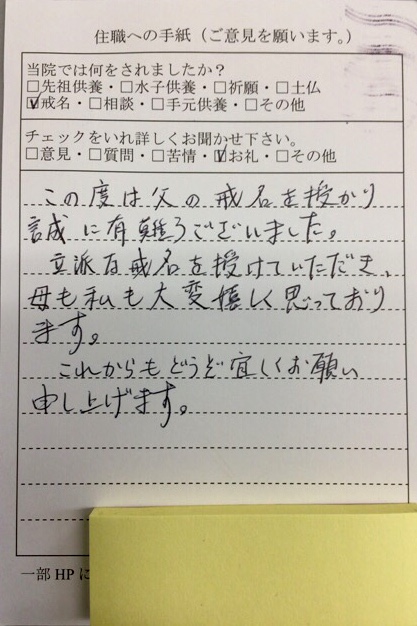 住職への手紙（ご意見を願います。）
当院では何をされましたか？
□先祖供養・□水子供養・□祈願・□土仏
☑戒名・□相談・□手元供養・□その他
チェックをいれ詳しくお聞かせ下さい。
□意見・□質問・□苦情・☑お礼・□その他
この度は父の戒名を授かり
誠に有難うございました。
立派な戒名を授けていただき、
母も私も大変嬉しく思っており
ます。
これからもどうぞ宜しくお願い
申し上げます。
一部HPに